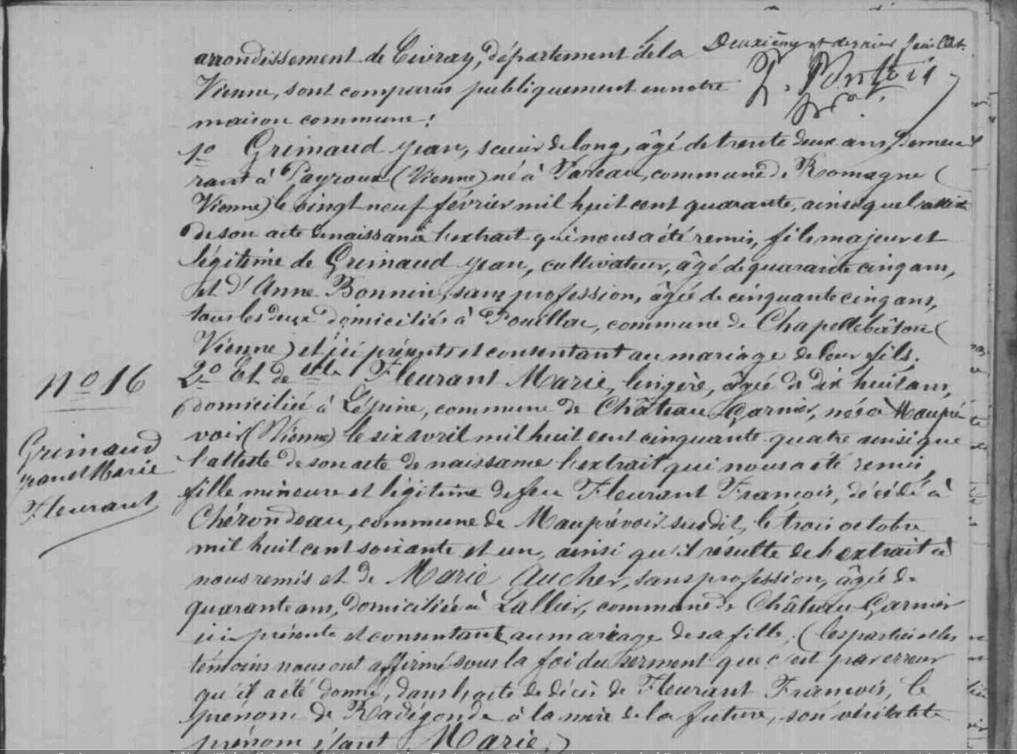 Deuxième et dernier feuillet.
arrondissement de Civray, département de la
Vienne, sont comparus publiquement en notre
maison commune:
1º Grimaud Jean, scieur de long, âgé de trente deux ans, demeu
rant à Payroux (Vienne) né à, commune de Romagne (
Vienne) le vingt neuf février mil huit cent quarante, ainsi que l'atteste
de son acte de naissance l'extrait qui nous a été remis, fils majeur et
légitime de Grimaud Jean, cultivateur, âgé de quarante cinq ans,
et d'Anne Bonnin, sans profession, âgée de cinquante cinq ans,
tous les deux domiciliés à, commune de Chapelle bâton (
Vienne) et ici présents et consentant au mariage de leur fils.
2º Et de elle Fleurant Marie, lingère, âgée de dix huit ans,
domiciliée à Lépine, commune de Château Garnier, née à Maupré
voir (Vienne) le six avril mil huit cent cinquante quatre ainsi que
l'atteste de son acte de naissance l'extrait qui nous a été remis,
fille mineure et légitime de feu Fleurant François, décédé à
Chérondeau, commune de Mauprévoir susdit, le trois octobre
mil huit cent soixante et un, ainsi qu'il résulte de l'extrait à
nous remis et de Marie Aucher, sans profession, âgée de
quarante ans, domiciliée à Lallier, commune de Château Garnier
ici présente et consentante au mariage de sa fille. (les parties et les
témoins nous ont affirmé sous la foi du serment que c'est par erreur
qu'il a été donné, dans l'acte de décès de Fleurant François, le
prénom de Radégonde à la mère de la future, son véritable
prénom étant Marie.)
nº 16
Grimaud
Jean et Marie
Fleurant